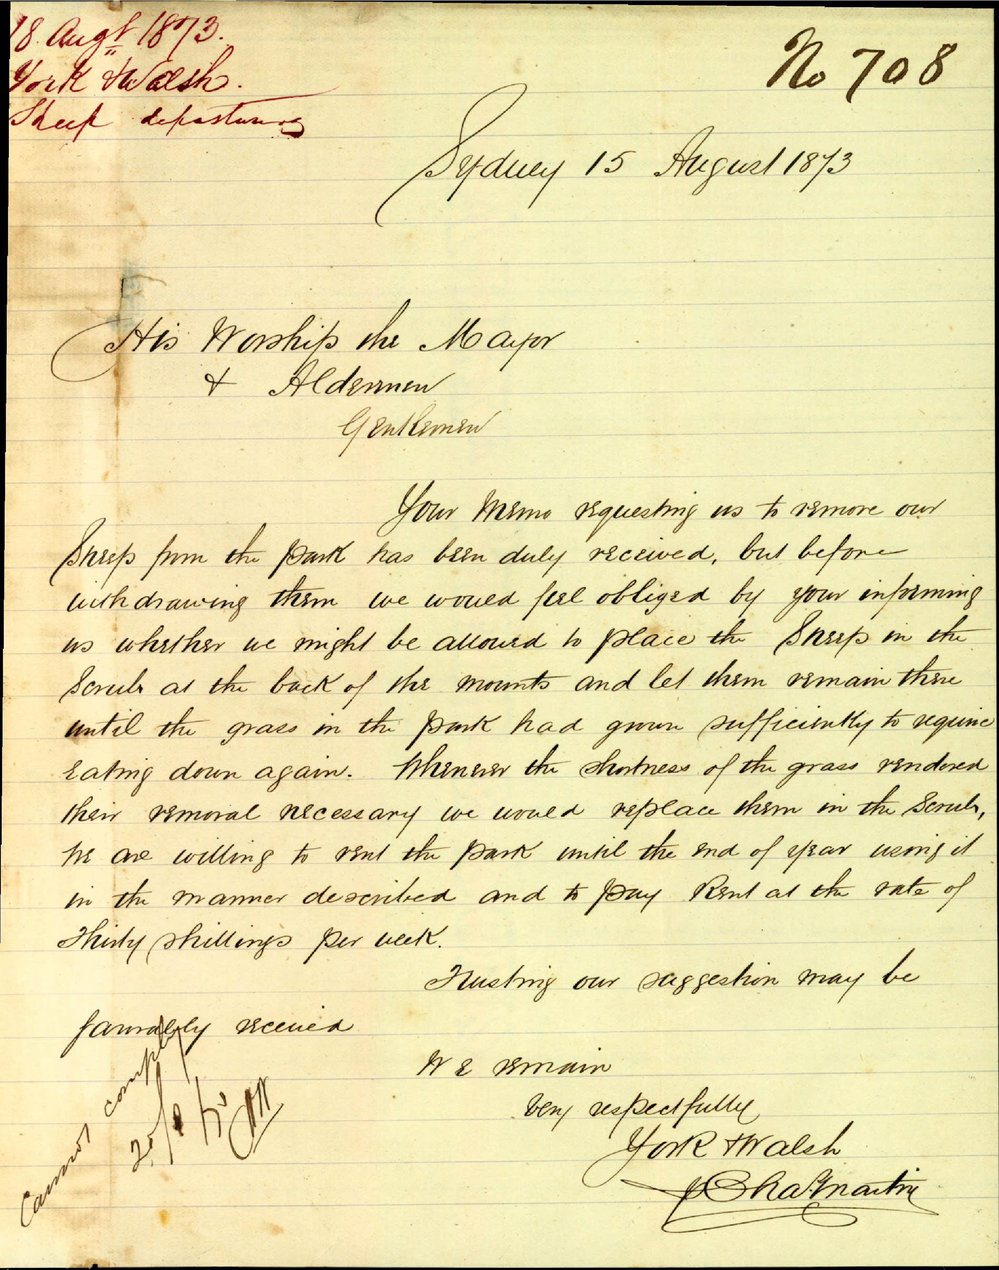 18. Augt 1873.
York & Walsh.
Sheep depasturing
No 708
Sydney 15 August 1873
His Worship the Mayor
& Aldermen
Gentlemen
Your Memo requesting us to remove our
Sheep from the park has been duly received, but before
withdrawing them we would feel obliged by your informing
us whether we might be allowed to place the Sheep in the
Scrub at the back of the mounts and let them remain there
until the grass in the park had grown sufficiently to require
Eating down again. Whenever the shortness of the grass rendered
their removal necessary we would replace them in the Scrub,
We are willing to rent the park until the end of year using it
in the manner described and to pay Rent at the rate of
Thirty shillings per week.
Trusting our suggestion may be
favorably received
We remain
Very respectfully
York & Walsh
p Chas Martin
Cannot comply
20/8/73